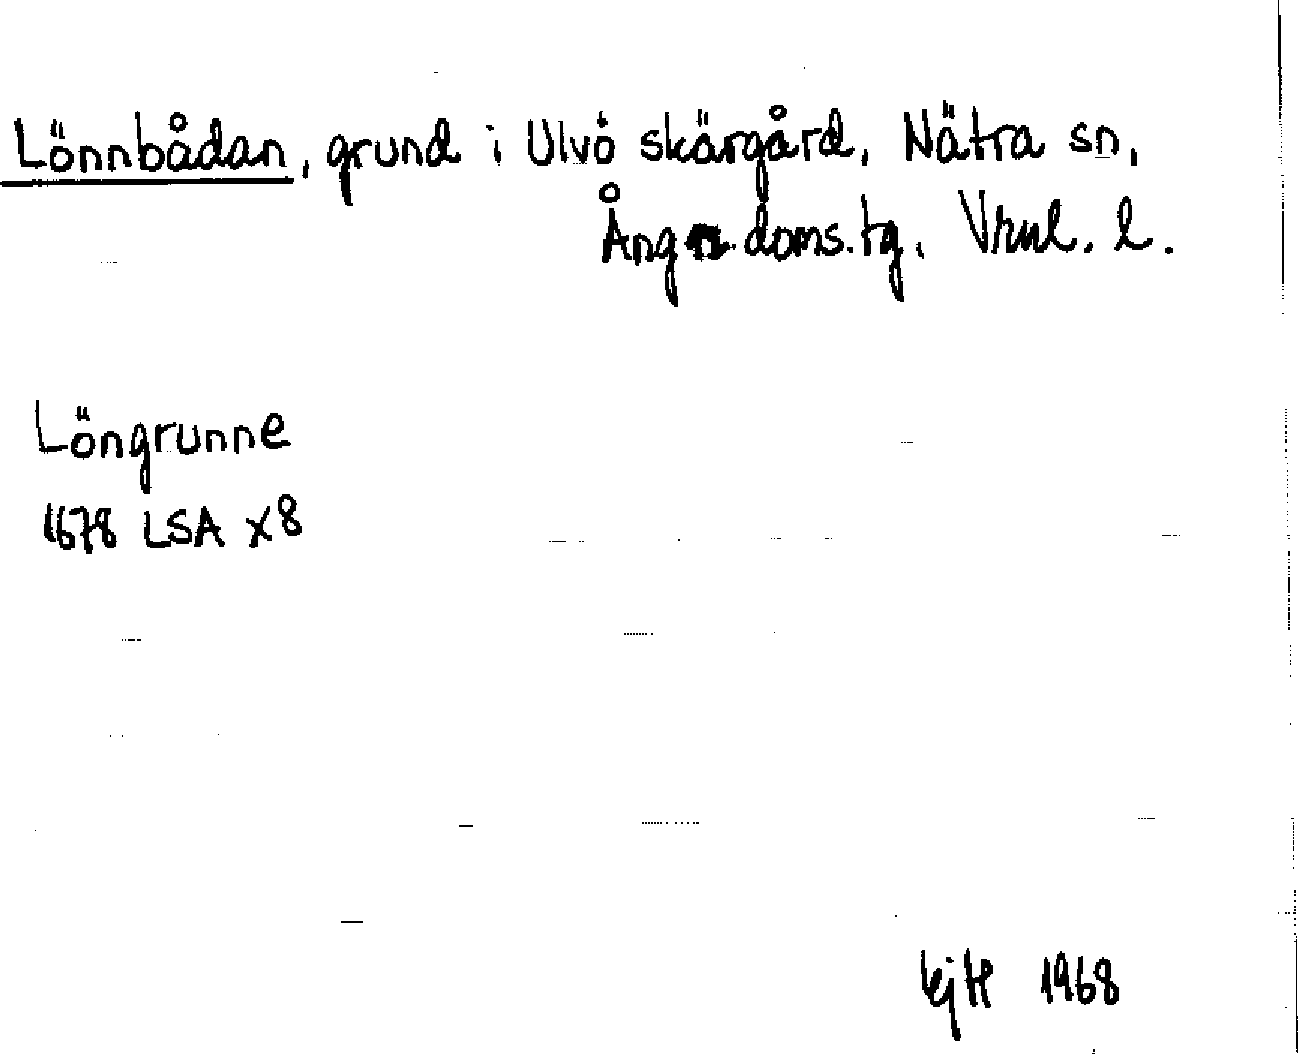 Lönnbådan, grund i Ulvö skärgård, Nätra sn,
Ång. doms.tg. Vrnl. l.
Löngrunne
1678 LSA X8
1968